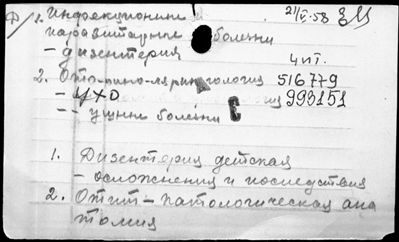 1. Инфекционные и 21/V-58
паразитарные болезни
- дизентерия 4 пт.
2. Ото-рино-ларингология 516779
- ухо 993151
-- ушные болезни
1. Дизентерия детская
- осложнения и последствия
2. Отит - патологическая ана
томия